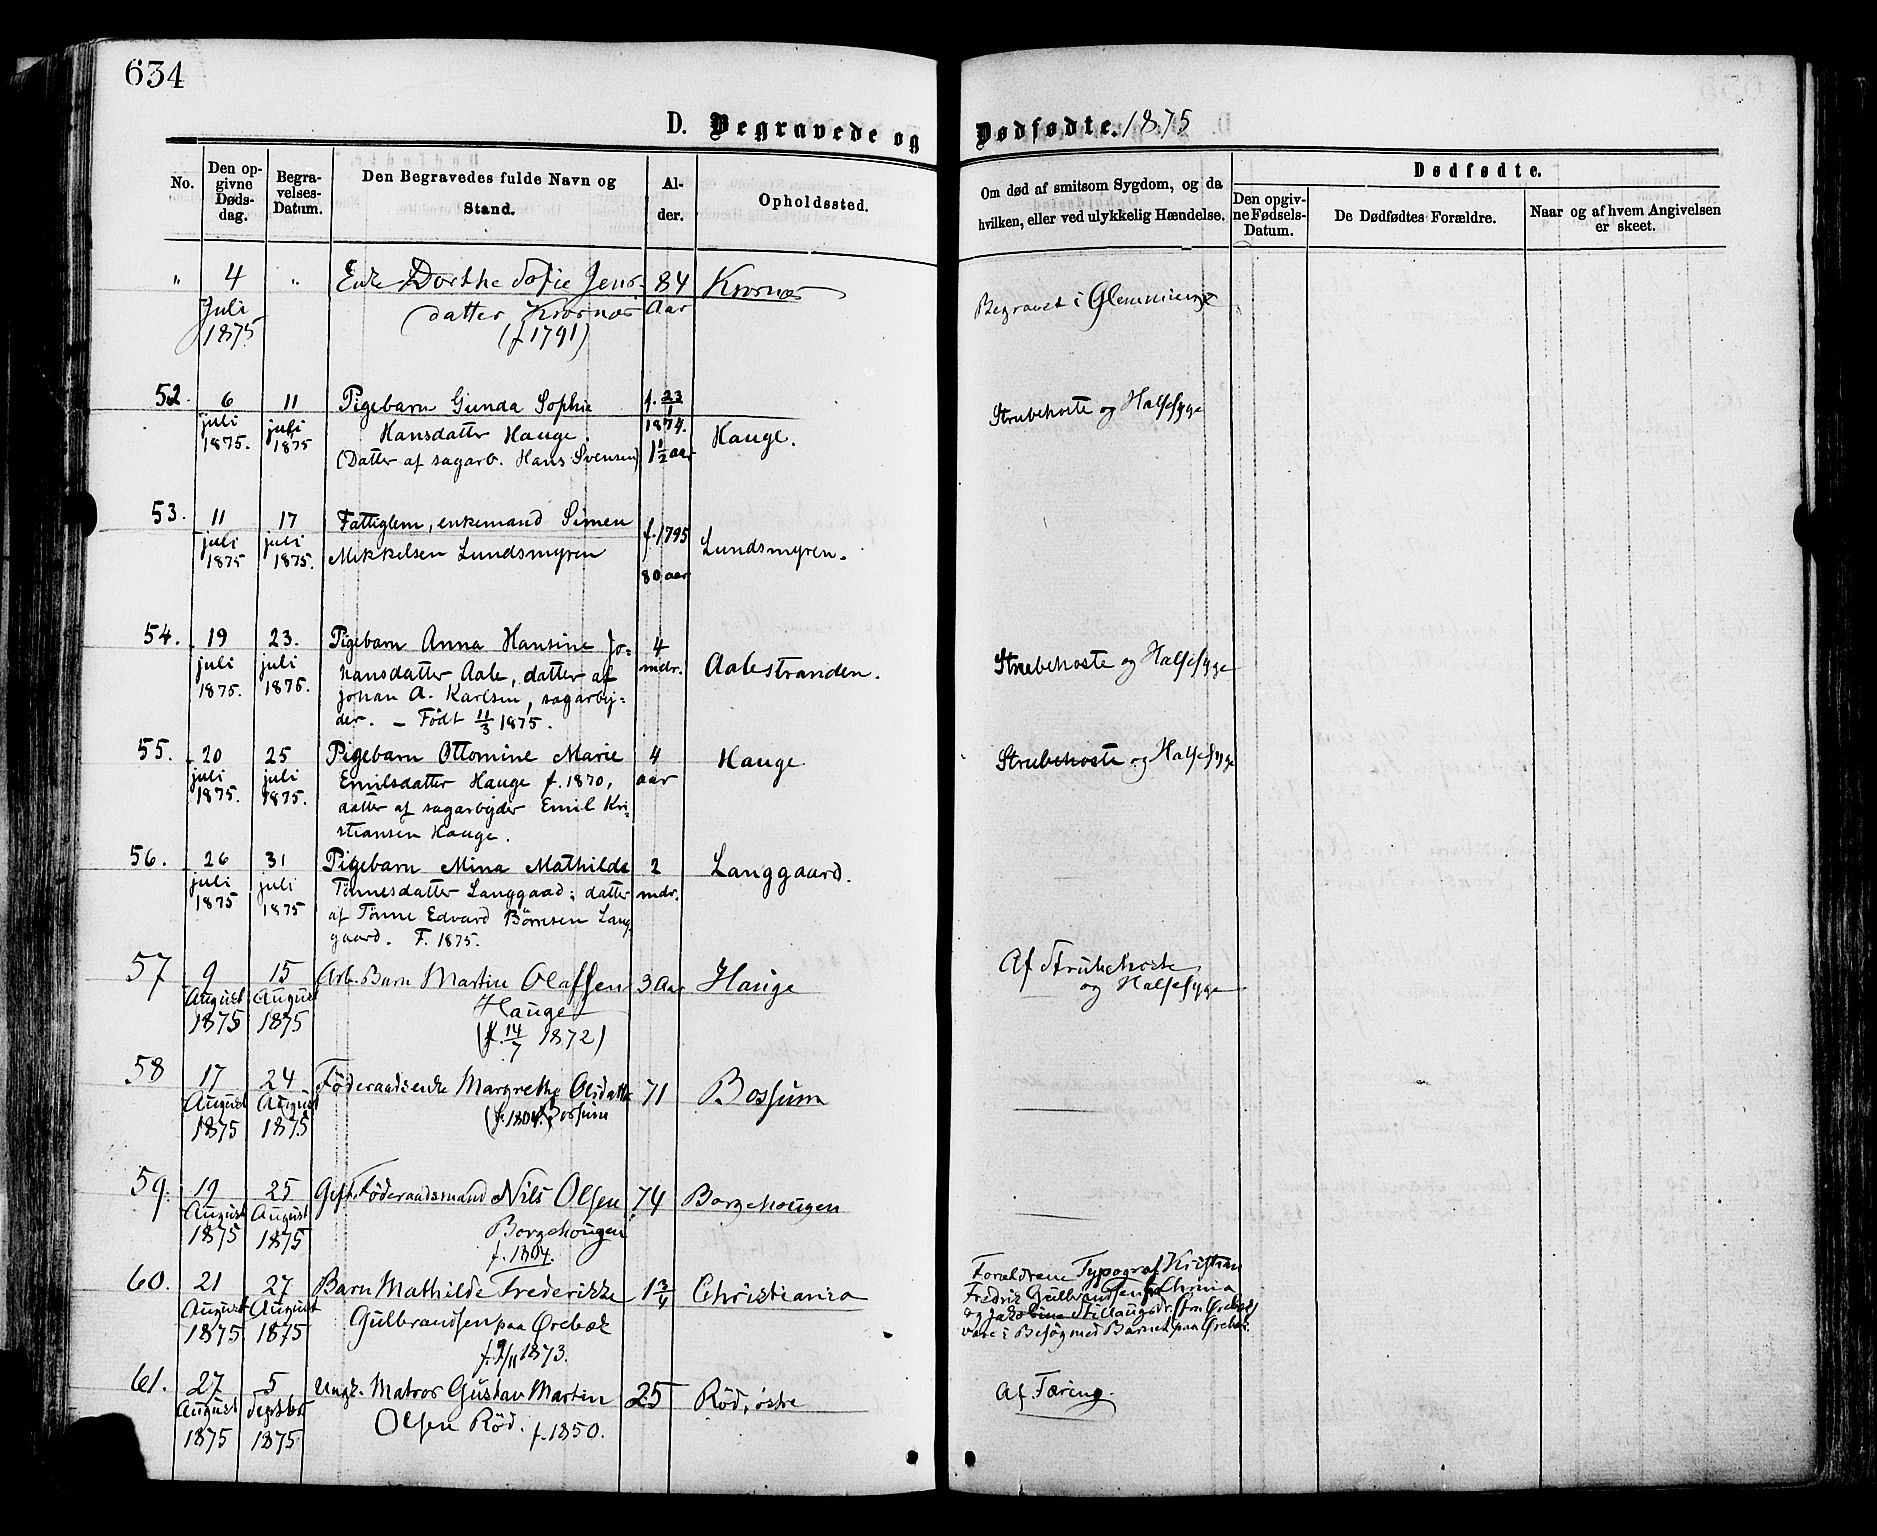 634
D. Begravede og Dødfødte. 1875
No.
Den opgivne Dødsdag.
Begravelses-Datum.
Den Begravedes fulde Navn og Stand.
Alder.
Opholdssted.
Om død af smitsom Sygdom, og da hvilken, eller ved ulykkelig Hændelse.
Dødfødte.
Den opgivne Fødsels-Datum.
De Dødfødtes Forældre.
Naar og af hvem Angivelsen er skeet.
" 4 " Enke Dorthe Sofie Jens- 84
Juli datter Aar
1875 (f 1791)
Begravet i Glemminge
52. 6 11 Pigebarn Gunda Sophie f. 23/1
juli juli Hansdatter Hauge. 1874. Hauge.
1875. 1875 (Datter af sagarb. Hans Svensen) 1 1/2 aar
Strubehoste og Halsesyge
53. 11 17 Fattiglem, enkemand Simen f. 1795
juli juli Mikkelsen Lundsmyren Lundsmyren.
1875 1875. 80 aar
54. 19 23. Pigebarn Anna Hansine Jo= 4
juli juli hansdatter Aale, datter af mdr. Aalestranden.
1875. 1875. Johan A. Karlsen, sagarbej=
der. — Født 11/3 1875.
Strubehoste og Halsesyge
55. 20 25 Pigebarn Ottomine Marie 4 Hauge
juli juli Emilsdatter Hauge f. 1870, aar
1875. 1875. datter af sagarbejder Emil Kri=
stiansen Hauge.
Strubehoste og Halsesyge
56. 26 31 Pigebarn Mina Mathilde 2 Langgaard.
juli juli Tønnesdatter Langgaad; datter mdr.
1875 1875 af Tønne Edvard Børresen Lang
gaard. F. 1875.
57 9 15 Arb. Barn Martin Olassen 3 Aar Hauge
August August Hauge
1875 1875 (f. 14/7 1872)
Af Strubehoste
og Halsesyge
58 17 24 Föderaadsenke Margrethe Olsdatter 71 Bossum
August August (f. 1804.) Bossum
1875 1875
59. 19 25 Gift Föderaadsmand Nils Olsen 74 Borgehougen
August August Borgehougen
1875 1875 f. 1804.
60. 21 27 Barn Mathilde Frederikke 1 3/4 Christiania
August August Gulbrandsen paa Ørebæk
1875 1875 f. 9/11 1873.
Forældrene Typograf Kristian
Fredrik Gulbrandsen
og Jakobine
vare i Besøg med Barnet paa Ørebæk.
61. 27 5 Ungk. Matros Gustav Martin 25 Röd, østre
August Septbr Olsen Röd. f. 1850.
1875 1875
Af Tæring.